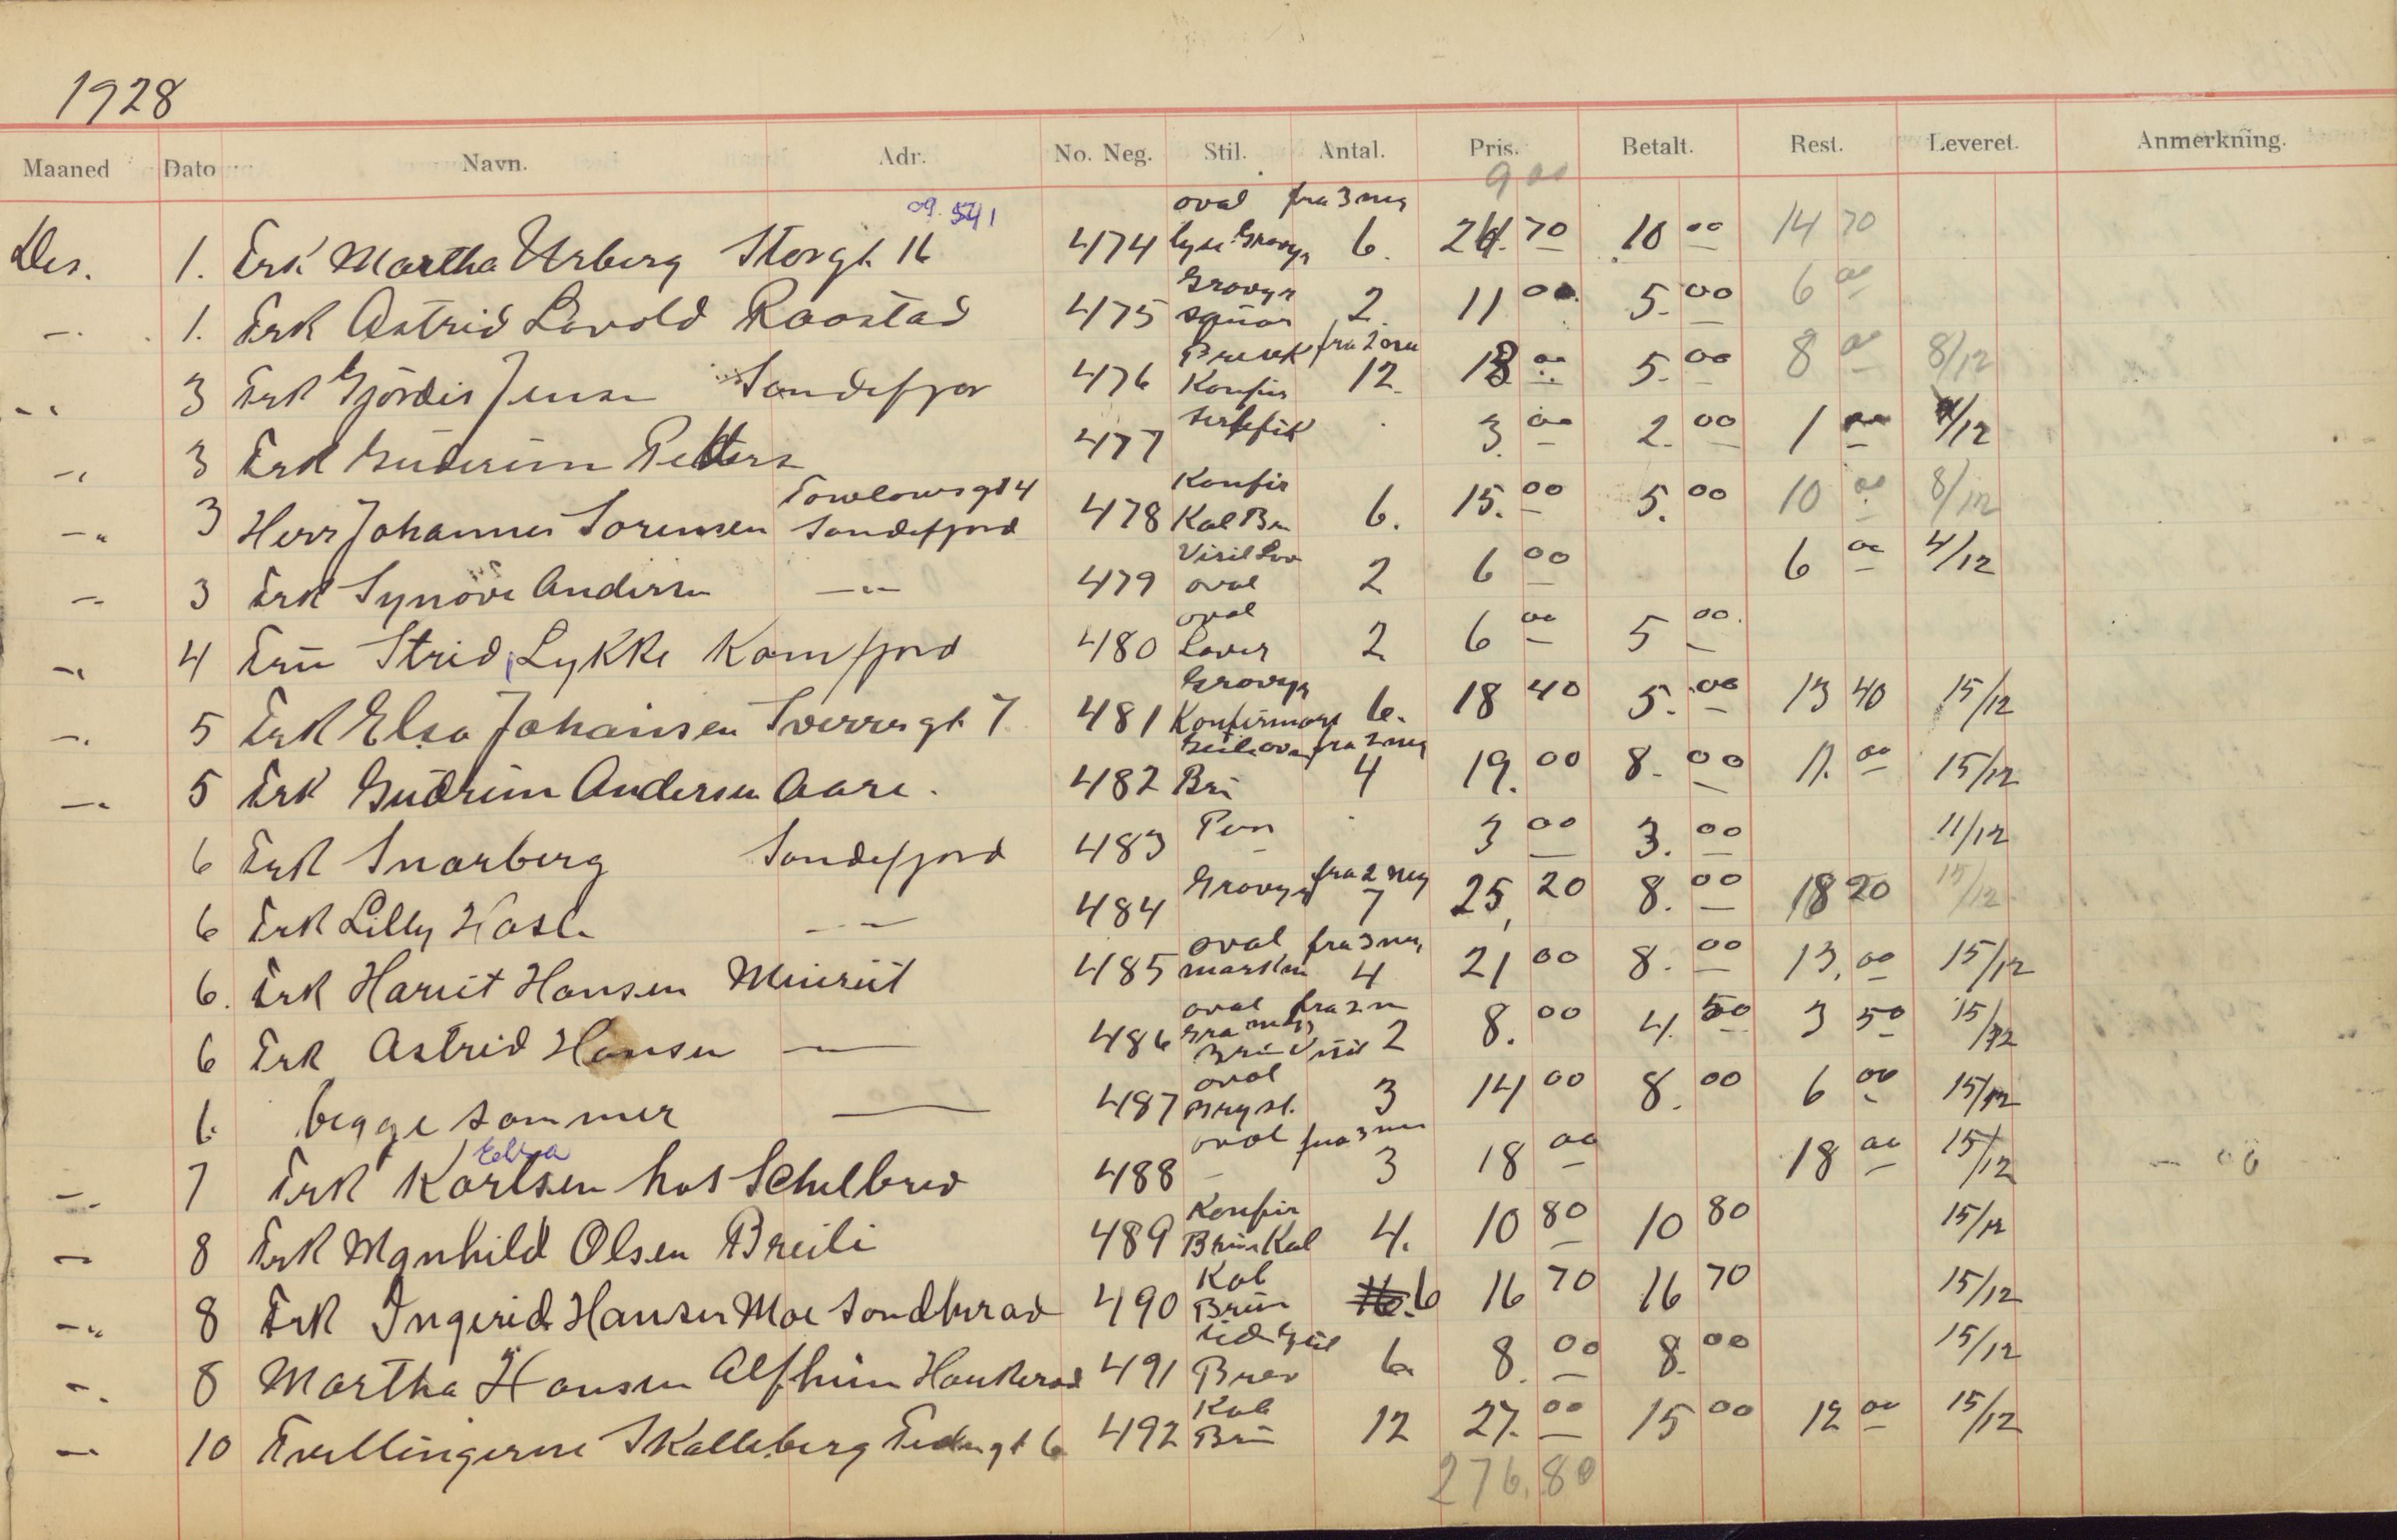 1928
Maaned Dato Navn. Adr. No. Neg. Stil. Antal. Pris. Betalt. Rest. Leveret. Anmerkning.
9 00
og 541 oval fra 3 neg
Des. 1. Frk Martha Urberg Storgt. 16 474 lyse Gravyr 6. 24.70 10 00 14 70
Gravyr
— 1. Frk Astrid Lovold Raastad 475 2. 11 00 5.00 6 00
fra 2
3 Frk Hjördis Jensen Sandefjor 476 Konfir 12. 18 00 5.00 8 00 8/12
3 Frk Gudrun 477 3 00 2.00 1 00 4/12
gt 4 Konfir
3 Herr Johannes Sorensen Sandefjord 478 Kab Brn 6. 15.00 5.00 10 00 8/12
Visit
3 Frk Synöve Andersen — 479 oval 2 6 00 6 00 4/12
oval
4 Fru Strid, Lykke Kamfjord 480 2 6 00 5 00
Gravyr
5 Frk Elsa Johansen Sverresgt. 7 481 Konfirmasj 6. 18 40 5.00 13 40 15/12
fra 2 neg
5 Frk Gudrun Andersen Aare. 482 Brn 4 19.00 8.00 11.00 15/12
6 Frk Snarberg Sandefjord 483 3 00 3.00 11/12
fra 2 neg
6 Frk Lilly Hasle — 484 Gravyr 7 25,20 8.00 18 20 15/12
oval fra 3 neg
6. Frk Harriet Hansen 485 4 21 00 8.00 13.00 15/12
oval fra 2 n
6 Frk Astrid Hansen — 486 Brun Visit 2 8.00 4.50 3 50 15/12
oval
6. begge sammen — 487 Bryst. 3 14 00 8.00 6 00 15/12
oval fra 3 neg
7 Frk Karlsen hos Schelbred 488 – 3 18 00 18 00 15/12
Konfir
8 Frk Magnhild Olsen Breili 489 Brun Kab 4. 10 80 10 80 15/12
Kab
8 Frk Ingerid Hansen Moe Sandherad 490 Brun 6 16 70 16 70 15/12
8 Martha Hansen Alfheim Haukerød 491 6 8.00 8.00 15/12
Kab
10 Tvillingerne Skalleberg 492 Brn 12 27.00 15 00 12 00 15/12
276,80